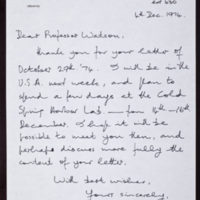 ext 630
6th Dec. 1974.
Dear Professor Watson,
Thank you for your letter of
October 29th '74. I will be in the
U.S.A. next week, and plan to
spend a few days at the Cold
Spring Harbor Lab — from 14th - 16th
December. I hope it will be
possible to meet you then, and
perhaps discuss more fully the
content of your letter.
With best wishes,
Yours sincerely,